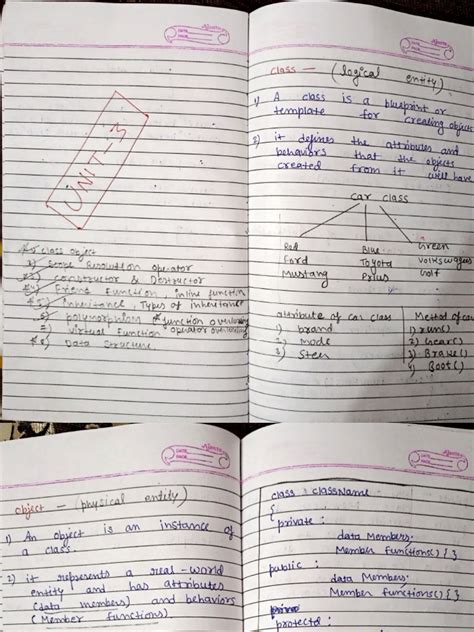 UNIT-3
class object
Scope Resolution operator
constructor & Destructor
Friend Function inline function
inheritance Types of inheritance
polymorphism function overloading
virtual Function operator overloading
Data Structure
class — (logical entity)
1) A class is a blueprint or
template for creating objects
2) it defines the attributes and
behaviors that the objects
created from it will have
car class
Red Blue Green
Ford Toyota Volkswagen
Mustang Prius Golf
attribute of car class
1) brand
2) mode
3)
Method of car
1) run()
2) Gear()
3) Brake()
4) Boot()
object — (physical entity)
1) An object is an instance of
a class.
2) it represents a real-world
entity and has attributes
(data members) and behaviors
(Member functions)
class className
{
private :
data Members;
Member functions() { }
public :
data Members;
Member functions() { }
protectd :